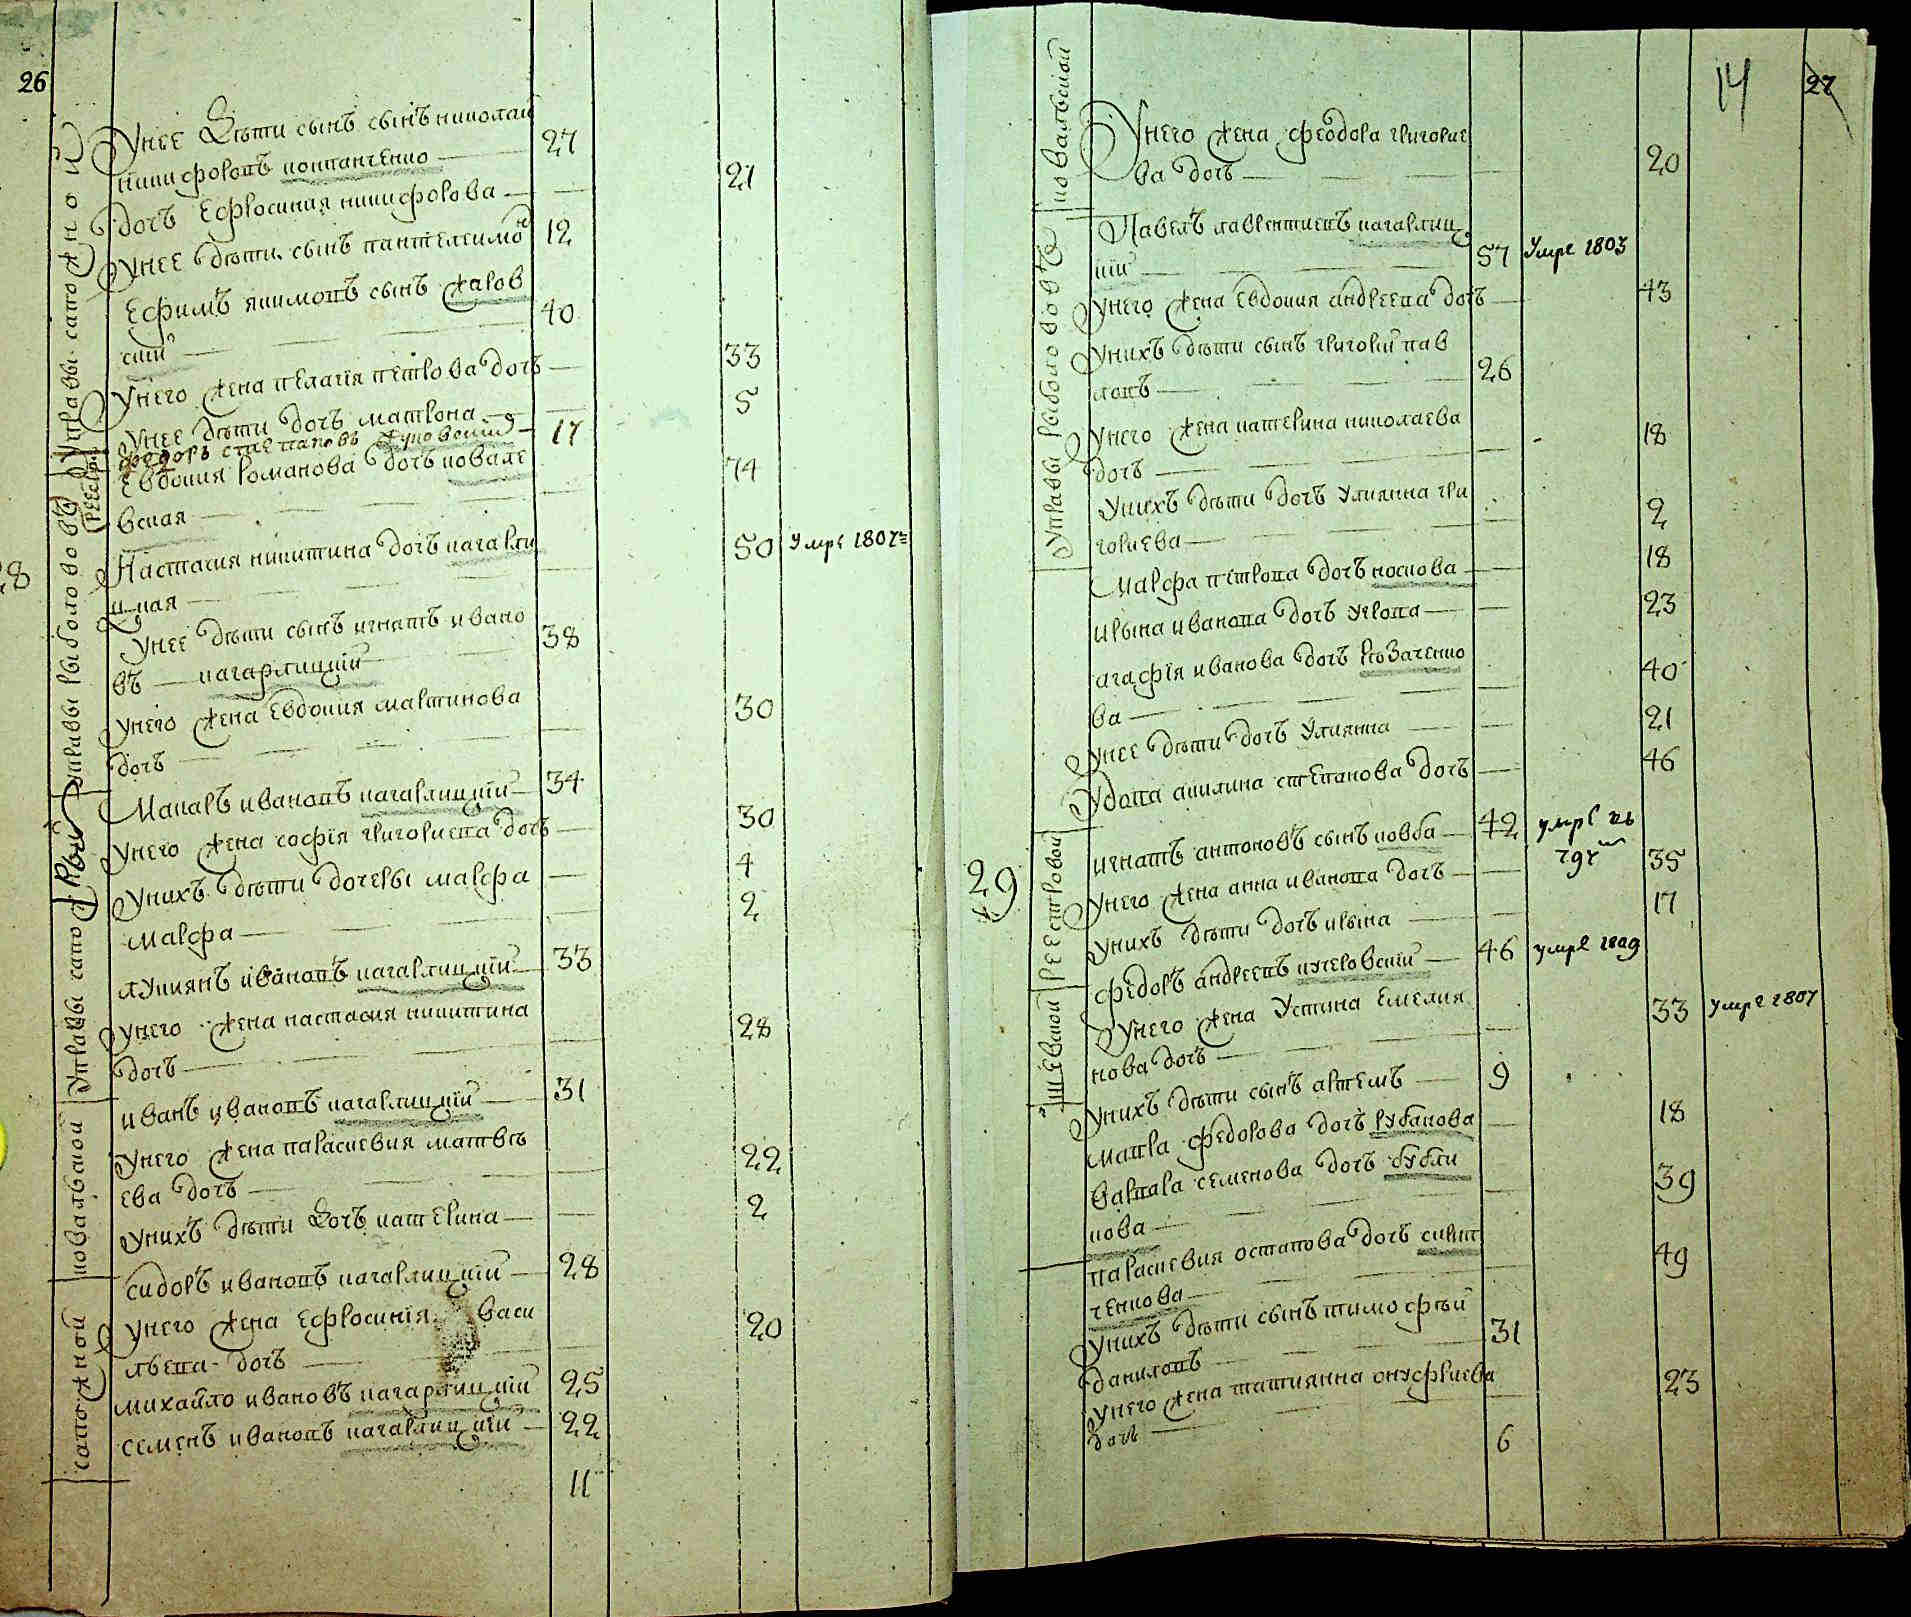 26
Управы сапожной
Унее Дѣти сынъ сынъ николай
никифоровъ
27
дочъ Ефросиния никифорова
21
Унее дѣти сынъ пантелеимон
12
Ефимъ якимовъ сынъ жаров
ский
40
Унего жена пелагия петрова дочъ
33
Унее дѣти дочъ матрона
5
Реестро
Федоръ степановъ
17
Евдокия романова дочъ ковале
вская
74
28
Управы рыболововъ
Настасия никитина дочъ кагарли
цкая
50 Умре 1807г
Унее дѣти сынъ игнатъ ивано
въ кагарлицкий
38
Унего жена Евдокия мартинова
дочъ
30
Макаръ ивановъ кагарлицкий
34
Унего жена софия григориева дочъ
30
Унихъ дѣти дочеры марфа
4
марфа
2
Управы сапо
Лукиянъ ивановъ кагарлицкий
33
Унего жена настасия никитина
дочъ
28
иванъ ивановъ кагарлицкий
31
ковальской
Унего жена параскевия матвѣ
ева дочъ
22
Унихъ дѣти Дочъ катерина
2
сидоръ ивановъ кагарлицкий
28
сапожной
Унего жена Ефросиния васи
льева дочъ
20
михайло ивановъ кагарлицкий
25
семенъ ивановъ кагарлицкий
22
11
14
27
ковальской
Унего жена феодора григорие
ва дочъ
20
Управы рыболововъ
Павелъ лаврентиевъ кагарлиц
кий
57 Умре 1803
Унего жена Евдокия андреева дочъ
43
Унихъ дѣти сынъ григорий пав
ловъ
26
Унего жена катерина николаева
дочъ
18
Унихъ дѣти дочъ Улиянна гри
гориева
2
Марфа петрова дочъ носкова
18
ирына иванова дочъ
23
агафия иванова дочъ
ва
40
Унее дѣти дочъ Улиянна
21
Удова акилина степанова дочъ
46
29
Реестровой
игнатъ антоновъ сынъ ковба
42 умре
Унего жена анна иванова дочъ
35
Унихъ дѣти дочъ ирына
17
федоръ андреевъ кучеровский
46 умре 1809
шевской
Унего жена Устина Емелия
нова дочъ
33 умре 1807
Унихъ дѣти сынъ артемъ
9
мавра федорова дочъ рубанова
18
варвара семенова дочъ бубли
кова
39
параскевия остапова дочъ
ченкова
49
Унихъ дѣти сынъ тимофѣй
даниловъ
31
Унего жена татиянна онуфриева
дочъ
23
6